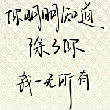 你明明知道
除了你
我一无所有